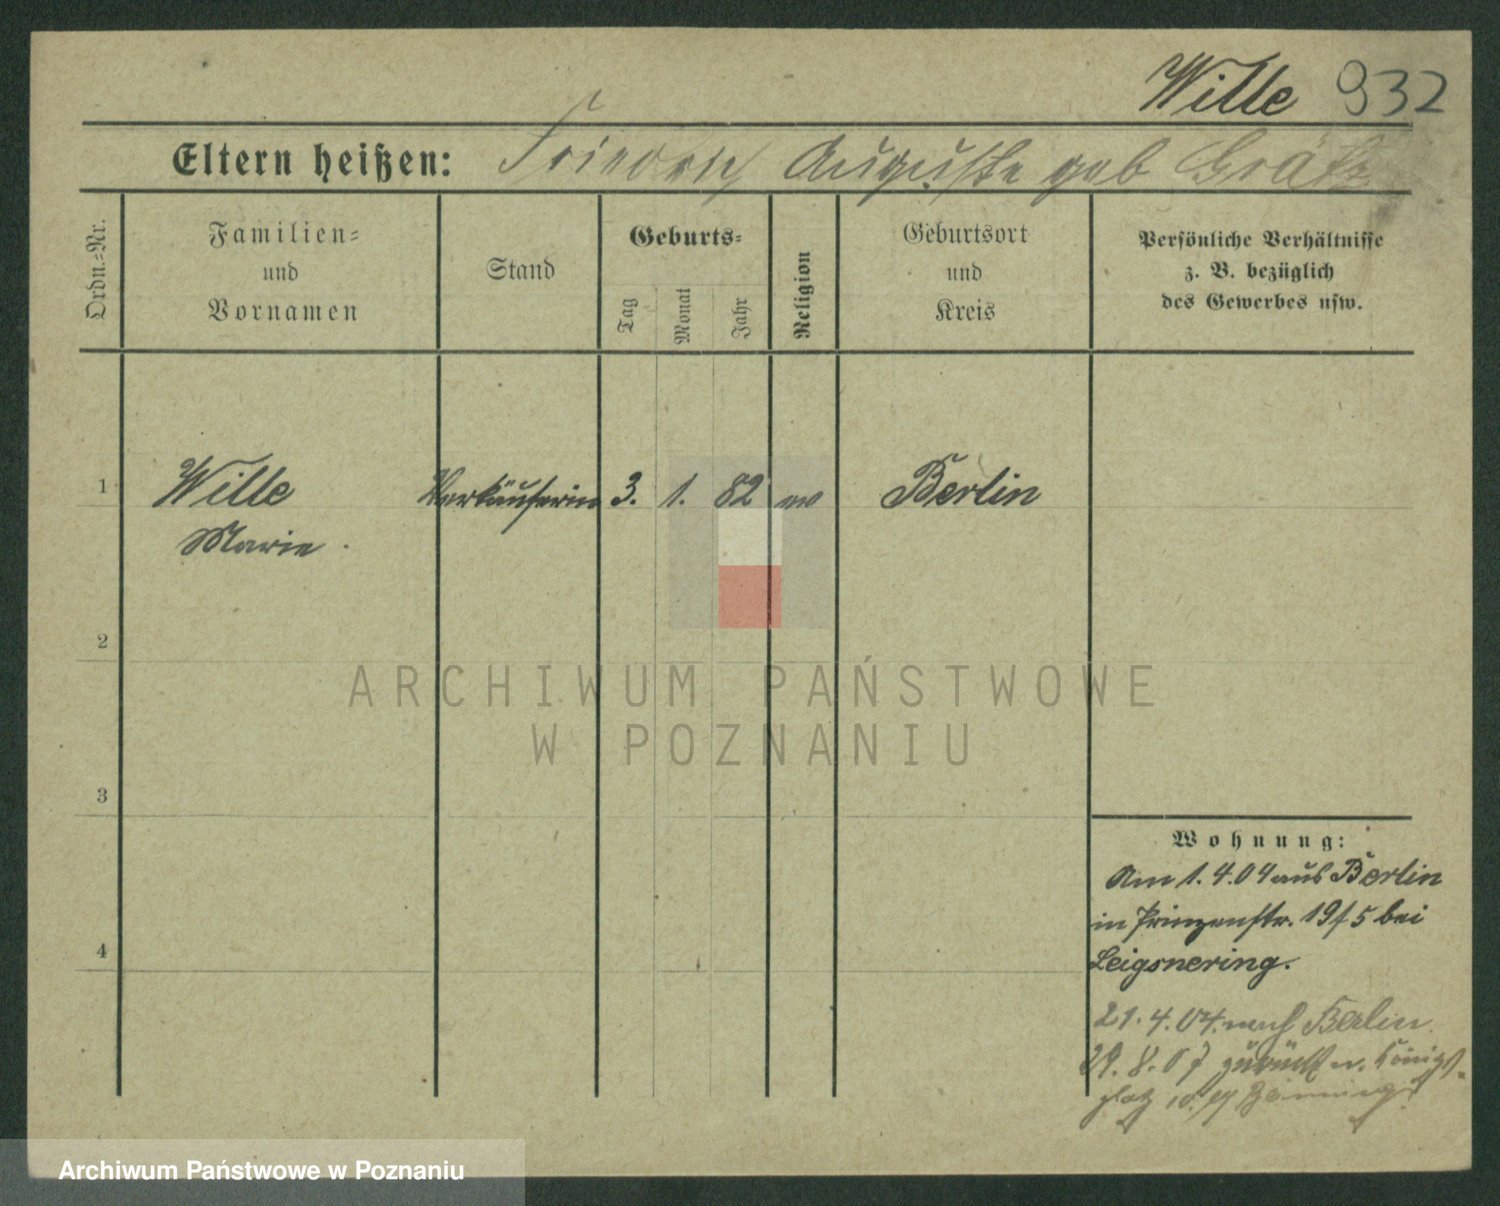 Wille 932
Eltern heißen: Friedrich Auguste geb Grätz
Ordn.=Nr.
Familien=
und
Vornamen
Stand
Geburts=
Tag
Monat
Jahr
Religion
Geburtsort
und
Kreis
Persönliche Verhältnisse
z. B. bezüglich
des Gewerbes usw.
1 Wille Verkäuferin 3. 1. 82 ev Berlin
Marie
2
ARCHIWUM PAŃSTWOWE
W POZNANIU
3
Wohnung:
Am 1.4.04 aus Berlin
in Prinzenstr. 19/5 bei
Leigsnering.
4
21.4.04. nach Berlin.
29.8.07 zurück n. Königs-
platz
Archiwum Państwowe w Poznaniu